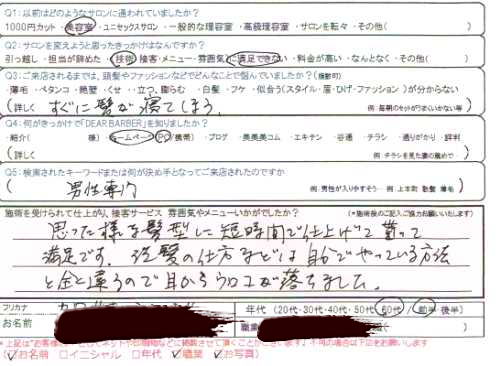 Q1:以前はどのようなサロンに通われていましたか?
1000円カット・美容室・ユニセックスサロン・一般的な理容室・高級理容室・サロンを転々・その他(　)
Q2:サロンを変えようと思ったきっかけはなんですか?
引っ越し・担当が辞めた・技術・接客・メニュー・雰囲気に満足できない・料金が高い・なんとなく・その他(　)
Q3:ご来店されるまでは、頭髪やファッションなどでどんなことで悩んでいましたか?(複数可)
・薄毛・ペタンコ・絶壁・くせ・立つ、膨らむ・白髪・フケ・似合う(スタイル・眉・ひげ・ファッション)が分からない
(詳しく すぐに髪が寝てしまう。
例:毎朝のセットがうまくいかない等)
Q4:何がきっかけで「DEAR BARBER」を知りましたか?
・紹介(　様)・ホームページ(PC/携帯)・ブログ・美美美コム・エキテン・谷通・チラシ・通りがかり・評判
(詳しく　例:チラシを見た妻の薦めで)
Q5:検索されたキーワードまたは何が決め手となってご来店されたのですか
男性専門
例:男性が入りやすそう…例:上本町 散髪 薄毛)
施術を受けられて仕上がり、接客サービス 雰囲気やメニューいかがでしたか?(*施術後のご記入ご協力お願いします)
思った様な髪型に短時間で仕上げて貰って
満足です。洗髪の仕方などは自分でやっている方法
と全と違うので目からウロコが落ちました。
フリカナ
年代(20代・30代・40代・50代・60代/前半 後半)
お名前
職業
*上記は"お客様
させて頂くことがございます」不可の場合は下記をお願いします
(☑お名前 □イニシャル □年代 ☑職業 ☑お写真)